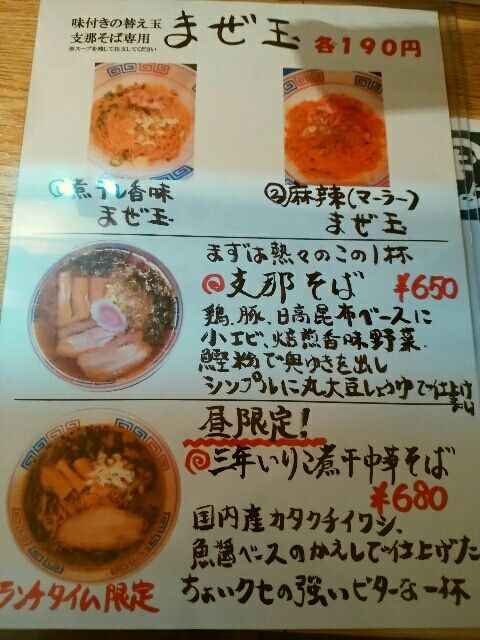 味付きの替え玉
支那そば専用
※スープを残して注文してください
まぜ玉
各190円
①煮干し香味
まぜ玉
②麻辣(マーラー)
まぜ玉
まずは熱々のこの1杯
支那そば ¥650
鶏、豚、日高昆布ベースに
小エビ、焙煎香味野菜、
鰹粉で奥ゆきを出し
シンプルに丸大豆しょうゆで仕上げ
ました
昼限定!
三年いりこ煮干中華そば
¥680
国内産カタクチイワシ、
魚醤ベースのかえしで仕上げた
ちょいクセの強いビターな一杯
ランチタイム限定